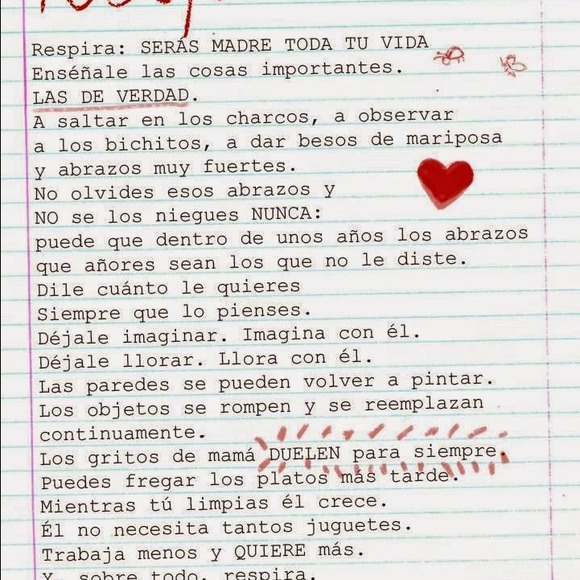 Respira: SERÁS MADRE TODA TU VIDA
Enséñale las cosas importantes.
LAS DE VERDAD.
A saltar en los charcos, a observar
a los bichitos, a dar besos de mariposa
y abrazos muy fuertes.
No olvides esos abrazos y
NO se los niegues NUNCA:
puede que dentro de unos años los abrazos
que añores sean los que no le diste.
Dile cuánto le quieres
Siempre que lo pienses.
Déjale imaginar. Imagina con él.
Déjale llorar. Llora con él.
Las paredes se pueden volver a pintar.
Los objetos se rompen y se reemplazan
continuamente.
Los gritos de mamá DUELEN para siempre.
Puedes fregar los platos más tarde.
Mientras tú limpias él crece.
Él no necesita tantos juguetes.
Trabaja menos y QUIERE más.
Y, sobre todo, respira.